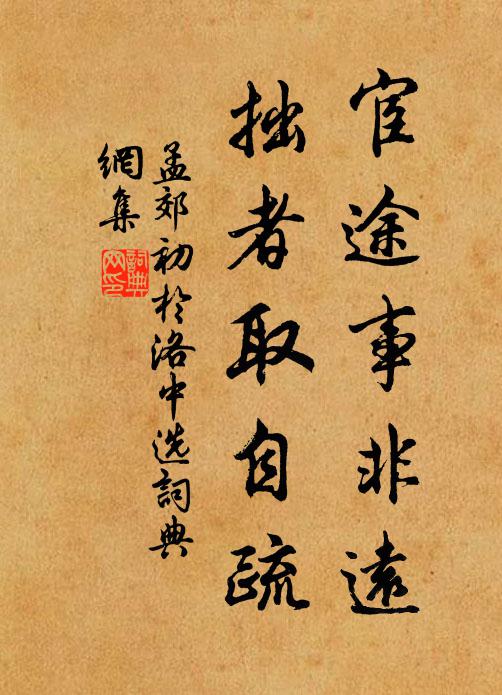 宦途事非遠
拙者取自疏
孟郊初於洛中选詞典
網集
詞典網印